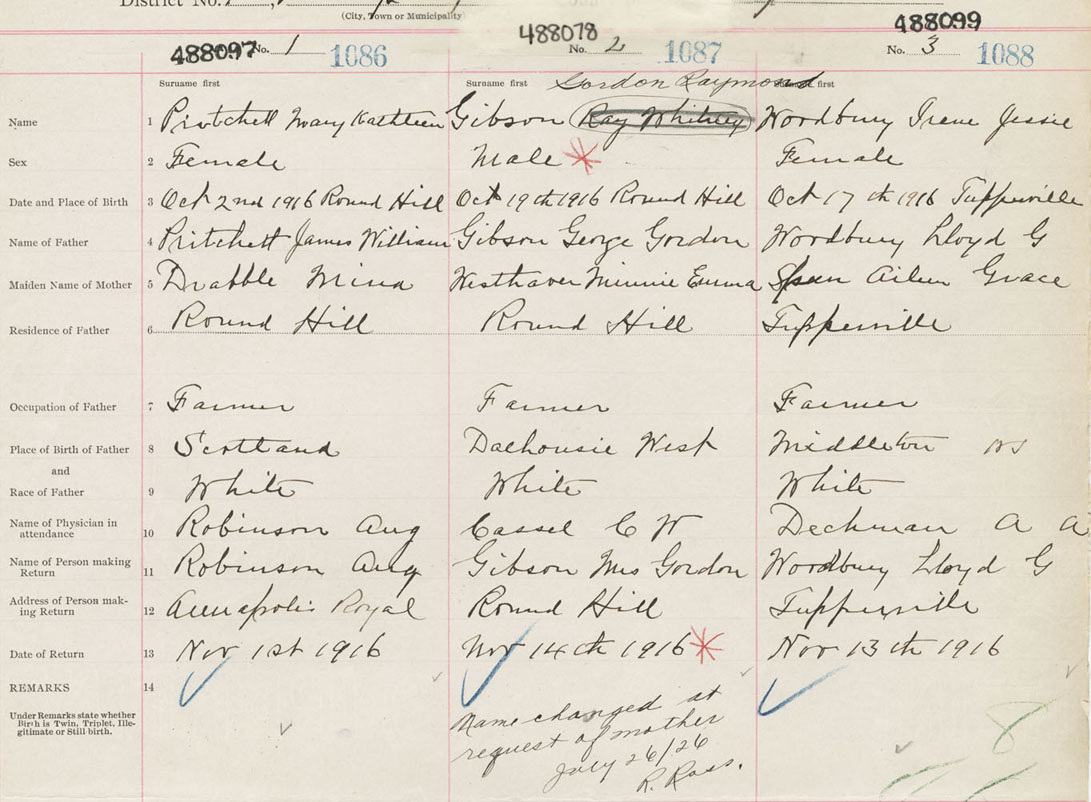 District No.
(City, Town or Municipality)
488097 No. 1 1086 488078 No. 2 1087 488099 No. 3 1088
Surname first Surname first Gordon Raymond Surname first
Name 1 Pritchett Mary Kathleen Gibson Ray Whitney Woodbury Irene Jessie
Sex 2 Female Male Female
Date and Place of Birth 3 Oct 2nd 1916 Round Hill Oct 19th 1916 Round Hill Oct 17th 1916 Tupperville
Name of Father 4 Pritchett James William Gibson George Gordon Woodbury Lloyd G
Maiden Name of Mother 5 Drabble Mina Westhaver Minnie Emma Aileen Grace
Residence of Father 6 Round Hill Round Hill Tupperville
Occupation of Father 7 Farmer Farmer Farmer
Place of Birth of Father 8 Scotland Dalhousie West Middleton NS
and
Race of Father 9 White White White
Name of Physician in
attendance 10 Robinson Aug Cassel C W Dechman A A
Name of Person making
Return 11 Robinson Aug Gibson Mrs Gordon Woodbury Lloyd G
Address of Person mak-
ing Return 12 Annapolis Royal Round Hill Tupperville
Date of Return 13 Nov 1st 1916 Nov 14th 1916 Nov 13th 1916
REMARKS 14
Under Remarks state whether
Birth is Twin, Triplet, Ille-
gitimate or Still birth.
Name changed at
request of mother
July 26/26
R. Ross.
8